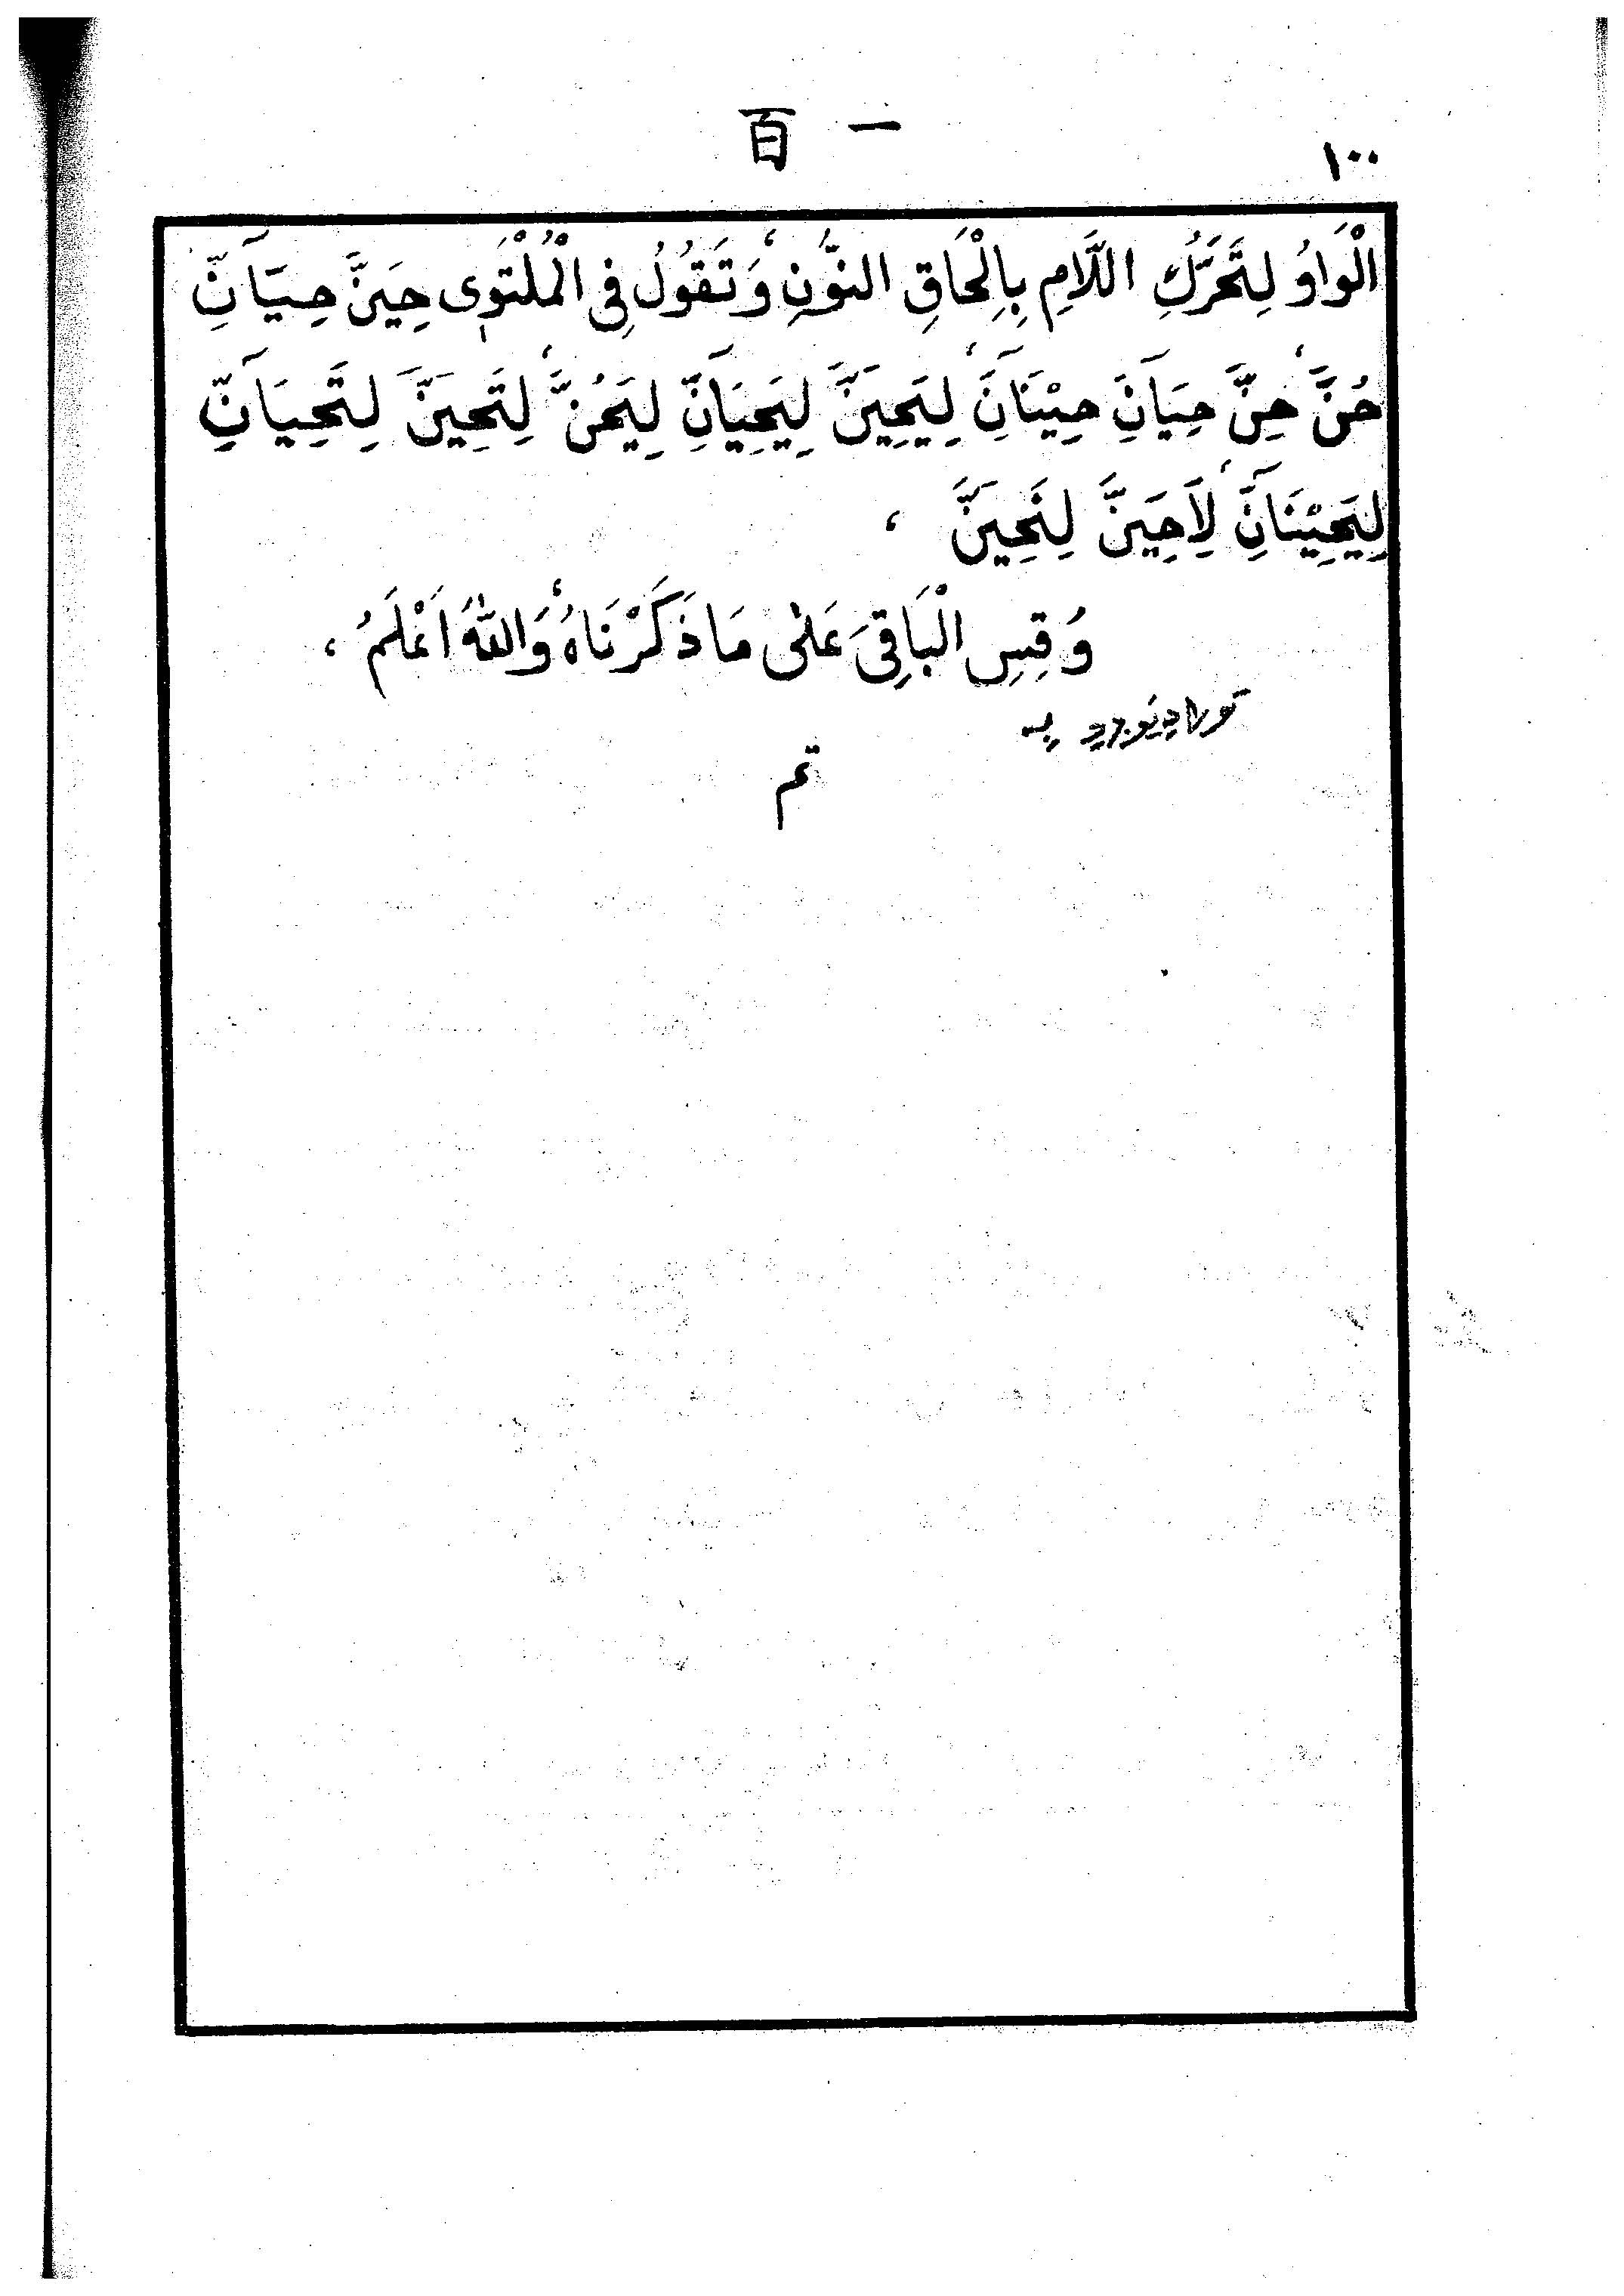 一百
١٠٠
الْوَاوُ لِتَحَرُّكِ اللَّامِ بِاِلْحَاقِ النُّونِ، وَتَقُولُ فِى الْمُلْتَوِى حِيَنَّ حِيَّآنِّ
حُنَّ، حِنَّ حِيَآنِّ حِيْنَآنِّ، لِيَحِيَنَّ لِيَحِيَآنِّ لِيَحُنَّ، لِتَحِيَنَّ لِتَحِيَآنِّ
لِيَحِيْنَآنِّ، لِاَحِيَنَّ لِنَحِيَنَّ ،
وَقِسِ الْبَاقِىَ عَلٰى مَا ذَكَرْنَاهُ، وَاللّٰهُ اَعْلَمُ ،
تم